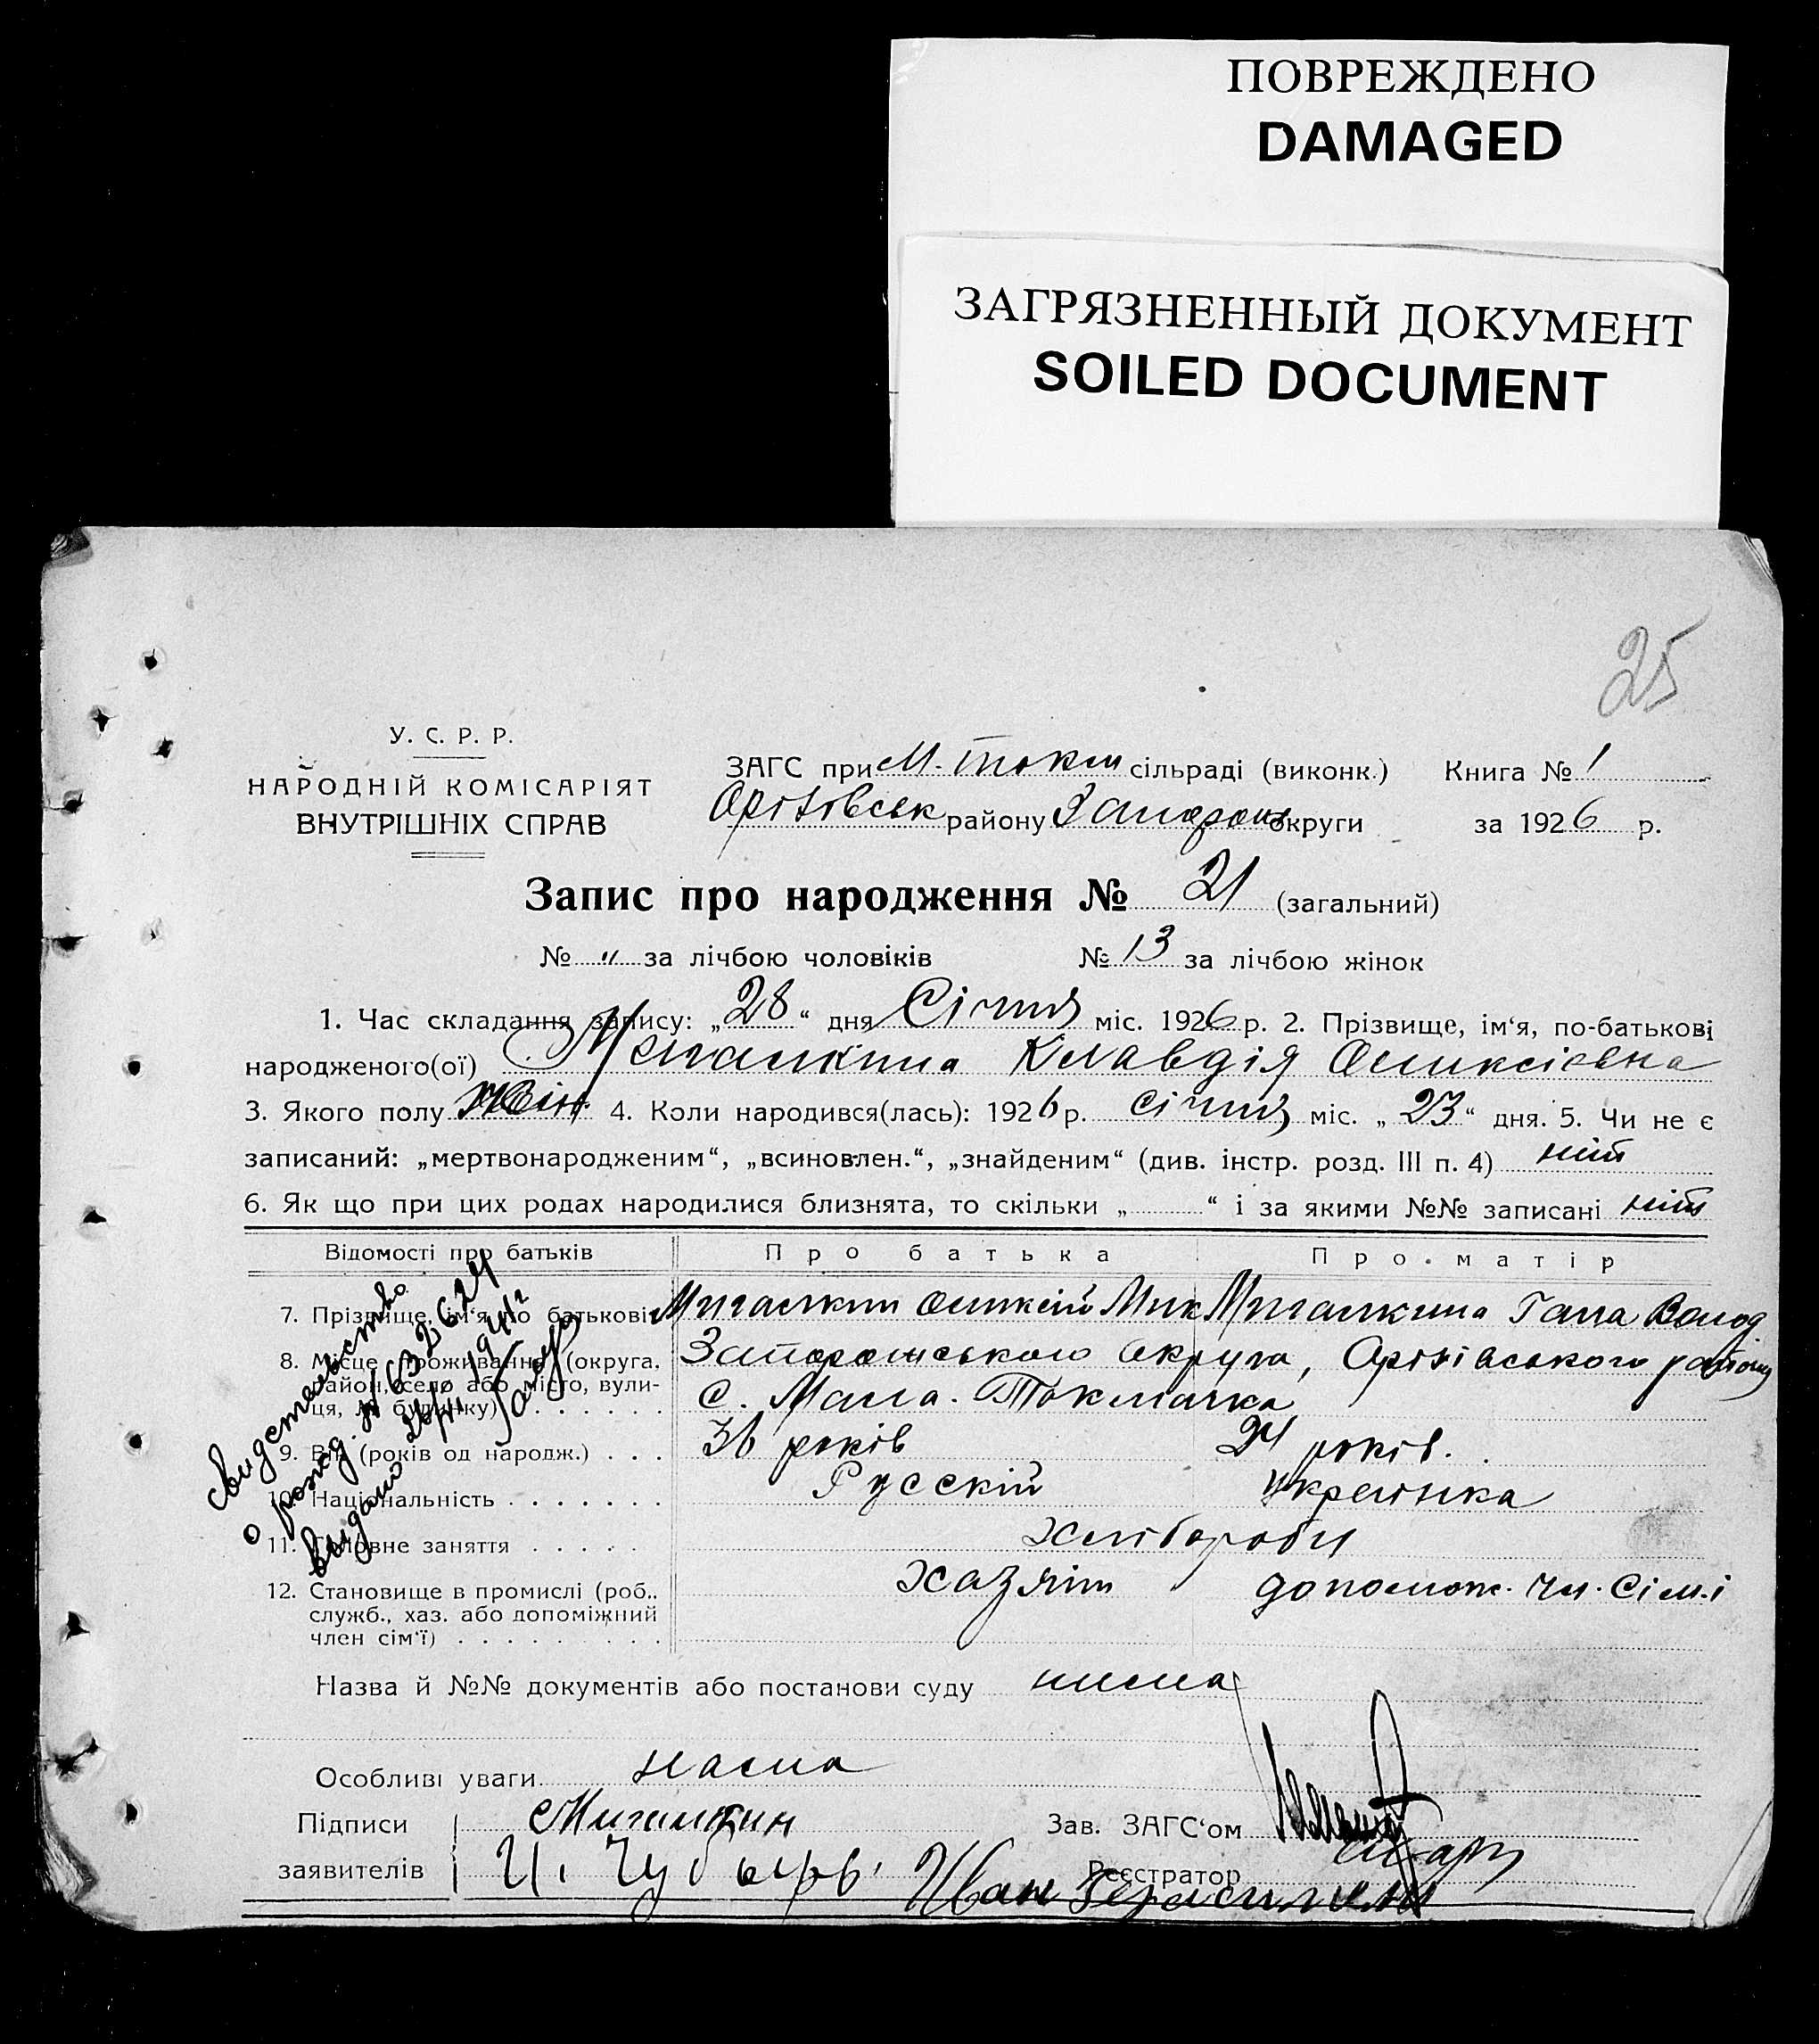 ПОВРЕЖДЕНО
DAMAGED
ЗАГРЯЗНЕННЫЙ ДОКУМЕНТ
SOILED DOCUMENT
25
У. С. Р. Р.
НАРОДНІЙ КОМІСАРІЯТ
ВНУТРІШНІХ СПРАВ
ЗАГС при М. Токм сільраді (виконк.) Книга № 1
Оріхівськ району Запорож округи за 1926 р.
Запис про народження № 21 (загальний)
№ „ за лічбою чоловіків № 13 за лічбою жінок
1. Час складання запису: „28“ дня Січня міс. 1926 р. 2. Прізвище, ім‘я, по-батькові
народженого(ої) Мигалкина Клавдія Оликсіевна
3. Якого полу жін. 4. Коли народився(лась): 1926 р. січня міс. „23“ дня. 5. Чи не є
записаний: „мертвонародженим“, „всиновлен.“, „знайденим“ (див. інстр. розд. III п. 4) ниш
6. Як що при цих родах народилися близнята, то скільки „ “ і за якими №№ записані ниш
Відомості про батьків Про батька Про матір
7. Прізвище, ім‘я по батькові Мигалкин Оликсій Мик Мигалкина Гана Волод
8. Місце проживання (округа, район, село або місто, вулиця, № будинку) Запорошського округа, Оріхівського району
с. Мала. Токмачка
9. Вік (років од народж.) 36 років 24 років.
10. Національність Русскій украінка
11. Головне заняття хлібороби
12. Становище в промислі (роб., служб., хаз. або допоміжний член сім‘ї) хазяін допомож. чл. сім.і
свидетельство
о рожд. № 632624
выдано
Назва й №№ документів або постанови суду нима
Особливі уваги нама
Підписи Мигалкин Зав. ЗАГС‘ом
заявителів И. Чубырь Реєстратор
Иван